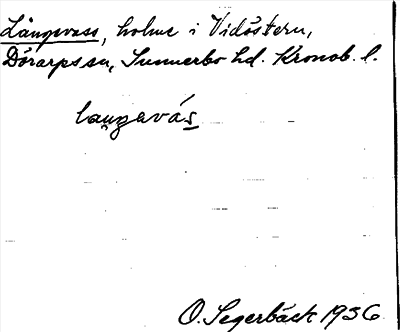 Långvass, holme i Vidöstern,
Dörarps sn, Sunnerbo hd. Kronob. l.
laŋgavás
O. Segerbäck 1936